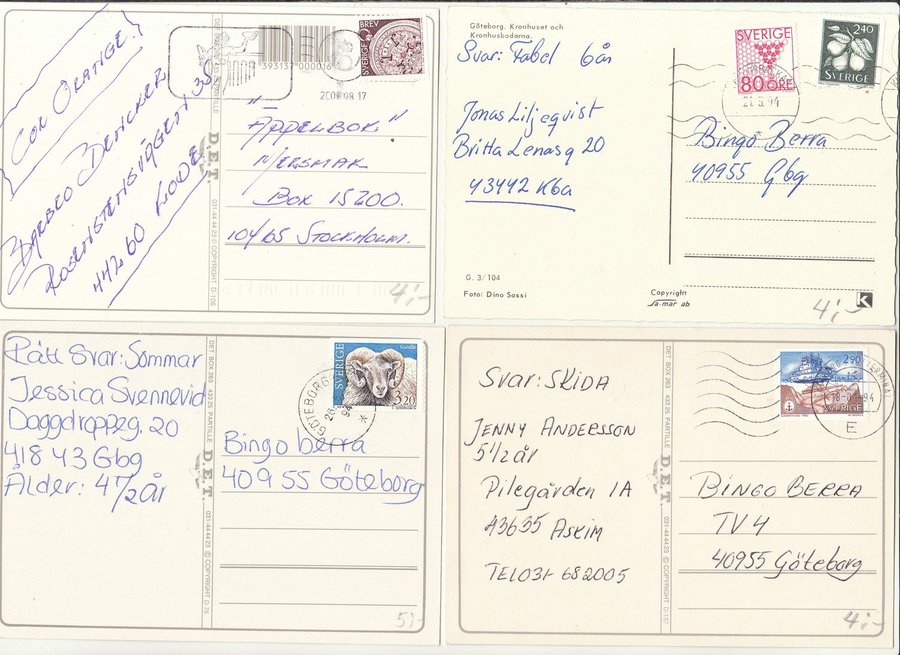 COR ORATIGE.
BARBRO
ROSENSTENSVÄGEN 35
44260 KODE
SVERIGE
BREV
393137000016
2000898 17
"ÄPPELBOK"
MERSMAK
BOX 15200.
10465 STOCKHOLM.
DET BOX 263 433 25 PARTILLE
D.E.T.
031-44 44 23 © COPYRIGHT D-106
4:-
Göteborg. Kronhuset och
Kronhusbodarna.
Svar: Fabel 6 år
Jonas Liljeqvist
Britta Lenasg 20
43442 Kba
SVERIGE
80 ÖRE
2.40
SVERIGE
21.3.94
Bingo Berra
40955 Gbg
G. 3/104
Foto: Dino Sassi
Copyright
sa-mar ab
K
4:-
Rätt Svar: Sommar
Jessica Svennevid
Daggdroppeg. 20
418 43 Gbg
Ålder: 4 1/2 år
SVERIGE
3.20
GÖTEBORG
94
Bingo berra
409 55 Göteborg
DET BOX 263 433 25 PARTILLE
D.E.T.
031-44 44 23 © COPYRIGHT D-76
5:-
Svar: SKIDA
JENNY ANDERSSON
5 1/2 år
Pilegården 1A
43655 ASKIM
TEL 031-682005
2.90
SVERIGE
E
BINGO BERRA
TV 4
40955 Göteborg
DET BOX 263 433 25 PARTILLE
D.E.T.
031-44 44 23 © COPYRIGHT D-137
4:-